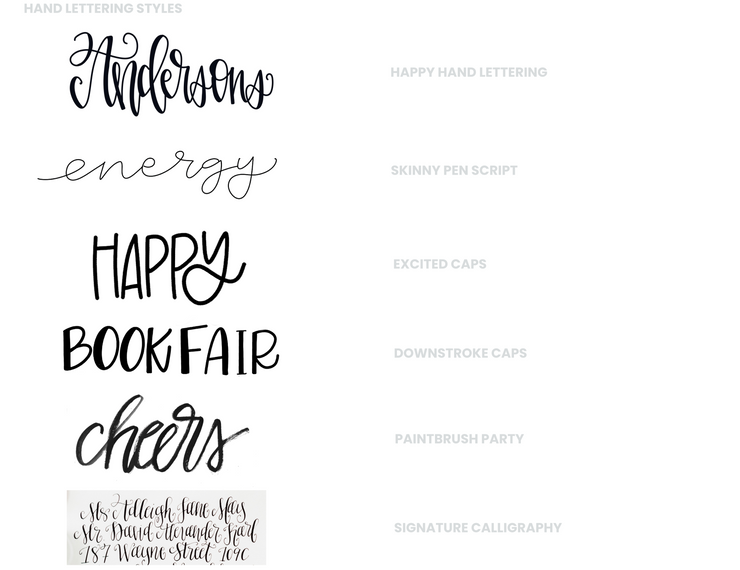 HAND LETTERING STYLES
Andersons
HAPPY HAND LETTERING
energy
SKINNY PEN SCRIPT
HAPPY
EXCITED CAPS
BOOK FAIR
DOWNSTROKE CAPS
cheers
PAINTBRUSH PARTY
Ms Adleigh Jane Mays
Mr David Alexander Karl
187 Wayne Street 109C
SIGNATURE CALLIGRAPHY